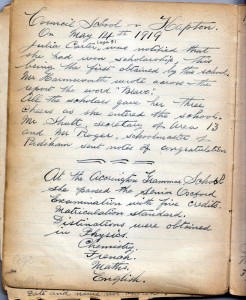 Council School Hapton.
On May 14th 1919
Julia Carter, was notified that
she had won scholarship, this
being the first obtained by this school.
Mr Harmsworth wrote across the
report the word "Bravo".
All the scholars gave her three
cheers as she entered the school.
Mr Shutt, secretary of Area 13
and Mr Roger, schoolmaster
Padiham sent notes of congratulation
At the Accrington Grammar School
she passed the Senior Oxford
Examination with five credits.
Matriculation standard.
Distinctions were obtained
in Physics.
Chemistry.
French.
Maths.
English.